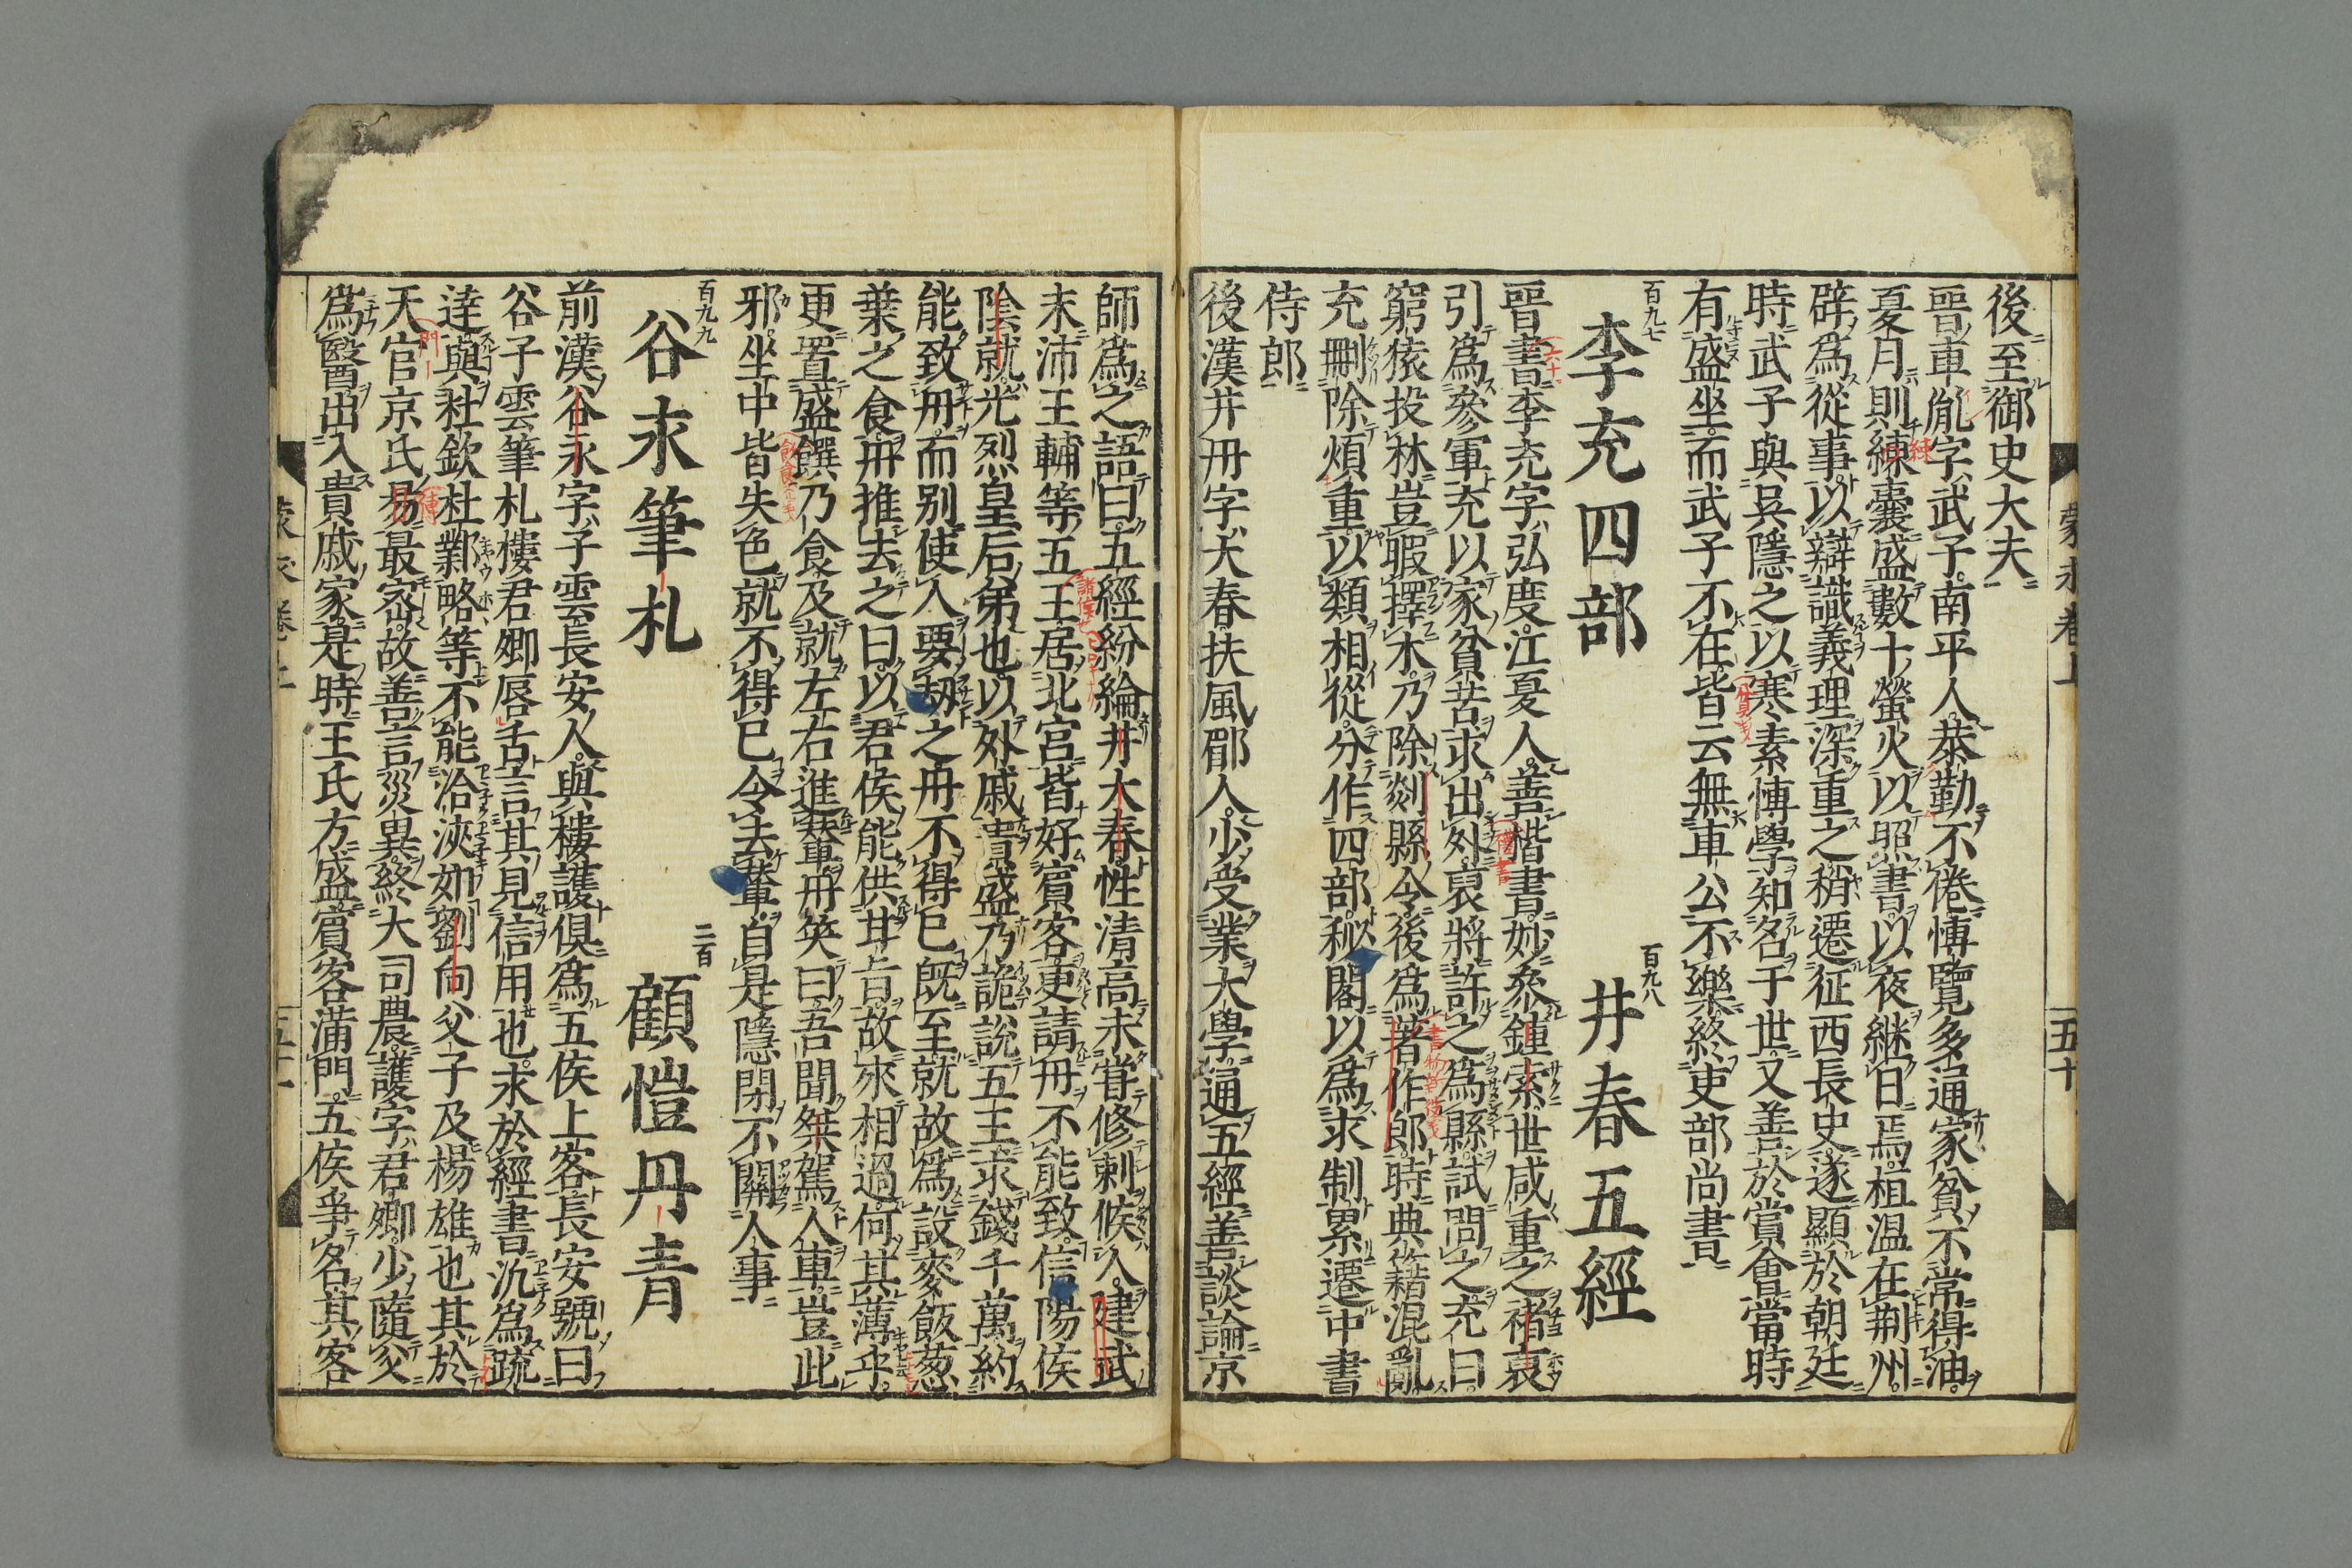 後至御史大夫
晉車胤字武子南平人恭勤不倦博覽多通家貧不常得油
夏月則練囊盛數十螢火以照書以夜継日焉桓温在荆州
辟為從事以辯識義理深重之稍遷征西長史遂顯於朝廷
時武子與吳隱之以寒素博學知名于世又善於賞會當時
有盛坐而武子不在皆云無車公不樂終吏部尚書
百九七
李充四部
百九八
井春五經
晉書李充字弘度江夏人善楷書妙參鍾索世咸重之褚裒
引為參軍充以家貧苦求出外裒將許之為縣試問之充曰
窮猿投林豈暇擇木乃除剡縣令後為著作郎時典籍混亂
充刪除煩重以類相從分作四部秘閣以為永制累遷中書
侍郎
後漢井丹字大春扶風郿人少受業大學通五經善談論京
蒙求卷上
五十
師為之語曰五經紛綸井大春性清高未嘗修刺候人建武
末沛王輔等五王居北宮皆好賓客更請丹不能致信陽侯
陰就光烈皇后弟也以外戚貴盛乃詭說五王求錢千萬約
能致丹而別使人要劫之丹不得已既至就故為設麥飯葱
葉之食丹推去之曰以君侯能供甘旨故來相過何其薄乎
更置盛饌乃食及就左右進輦丹笑曰吾聞桀駕人車豈此
邪坐中皆失色就不得已令去輦自是隱閉不關人事
百九九
谷永筆札
二百
顧愷丹青
前漢谷永字子雲長安人與樓護俱為五侯上客長安號曰
谷子雲筆札樓君卿唇舌言其見信用也永於經書汎為疏
達與杜欽杜鄴略等不能洽浹如劉向父子及楊雄也其於
天官京氏易最密故善言災異終大司農護字君卿少隨父
為醫出入貴戚家是時王氏方盛賓客滿門五侯爭名其客
蒙求卷上
五十一